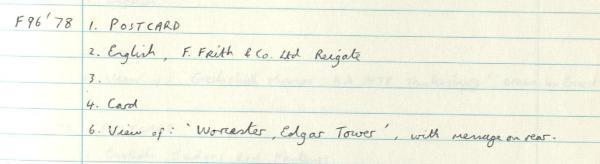 F96'78 1. POSTCARD
2. English, F. Frith & Co. Ltd Reigate
3.
4. Card
6. View of: 'Worcester, Edgar Tower', with message on rear.